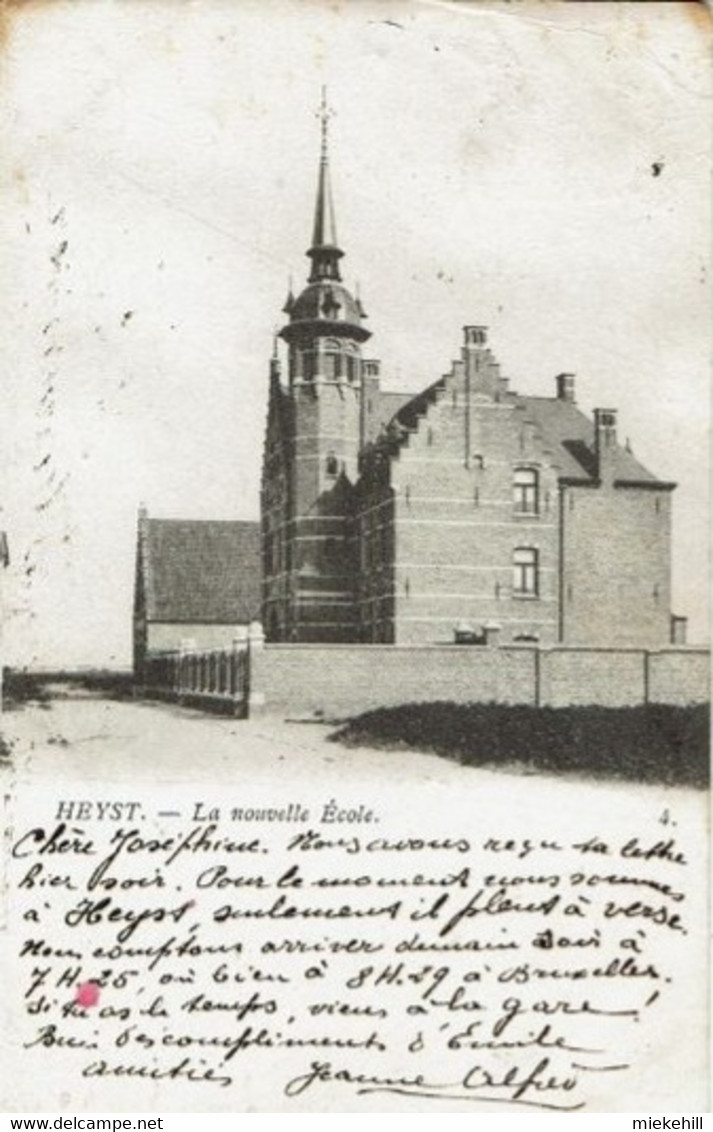 HEYST. — La nouvelle École. 4.
Chère Joséphine. Nous avons reçu ta lettre
hier soir. Pour le moment nous sommes
à Heyst, seulement il pleut à verse.
Nous comptons arriver demain soir à
7 H. 25, ou bien à 8 H. 29 à Bruxelles.
Si tu as le temps, viens à la gare!
Bien des compliments d'Emile
amitiés Jeanne Alfred
miekehill